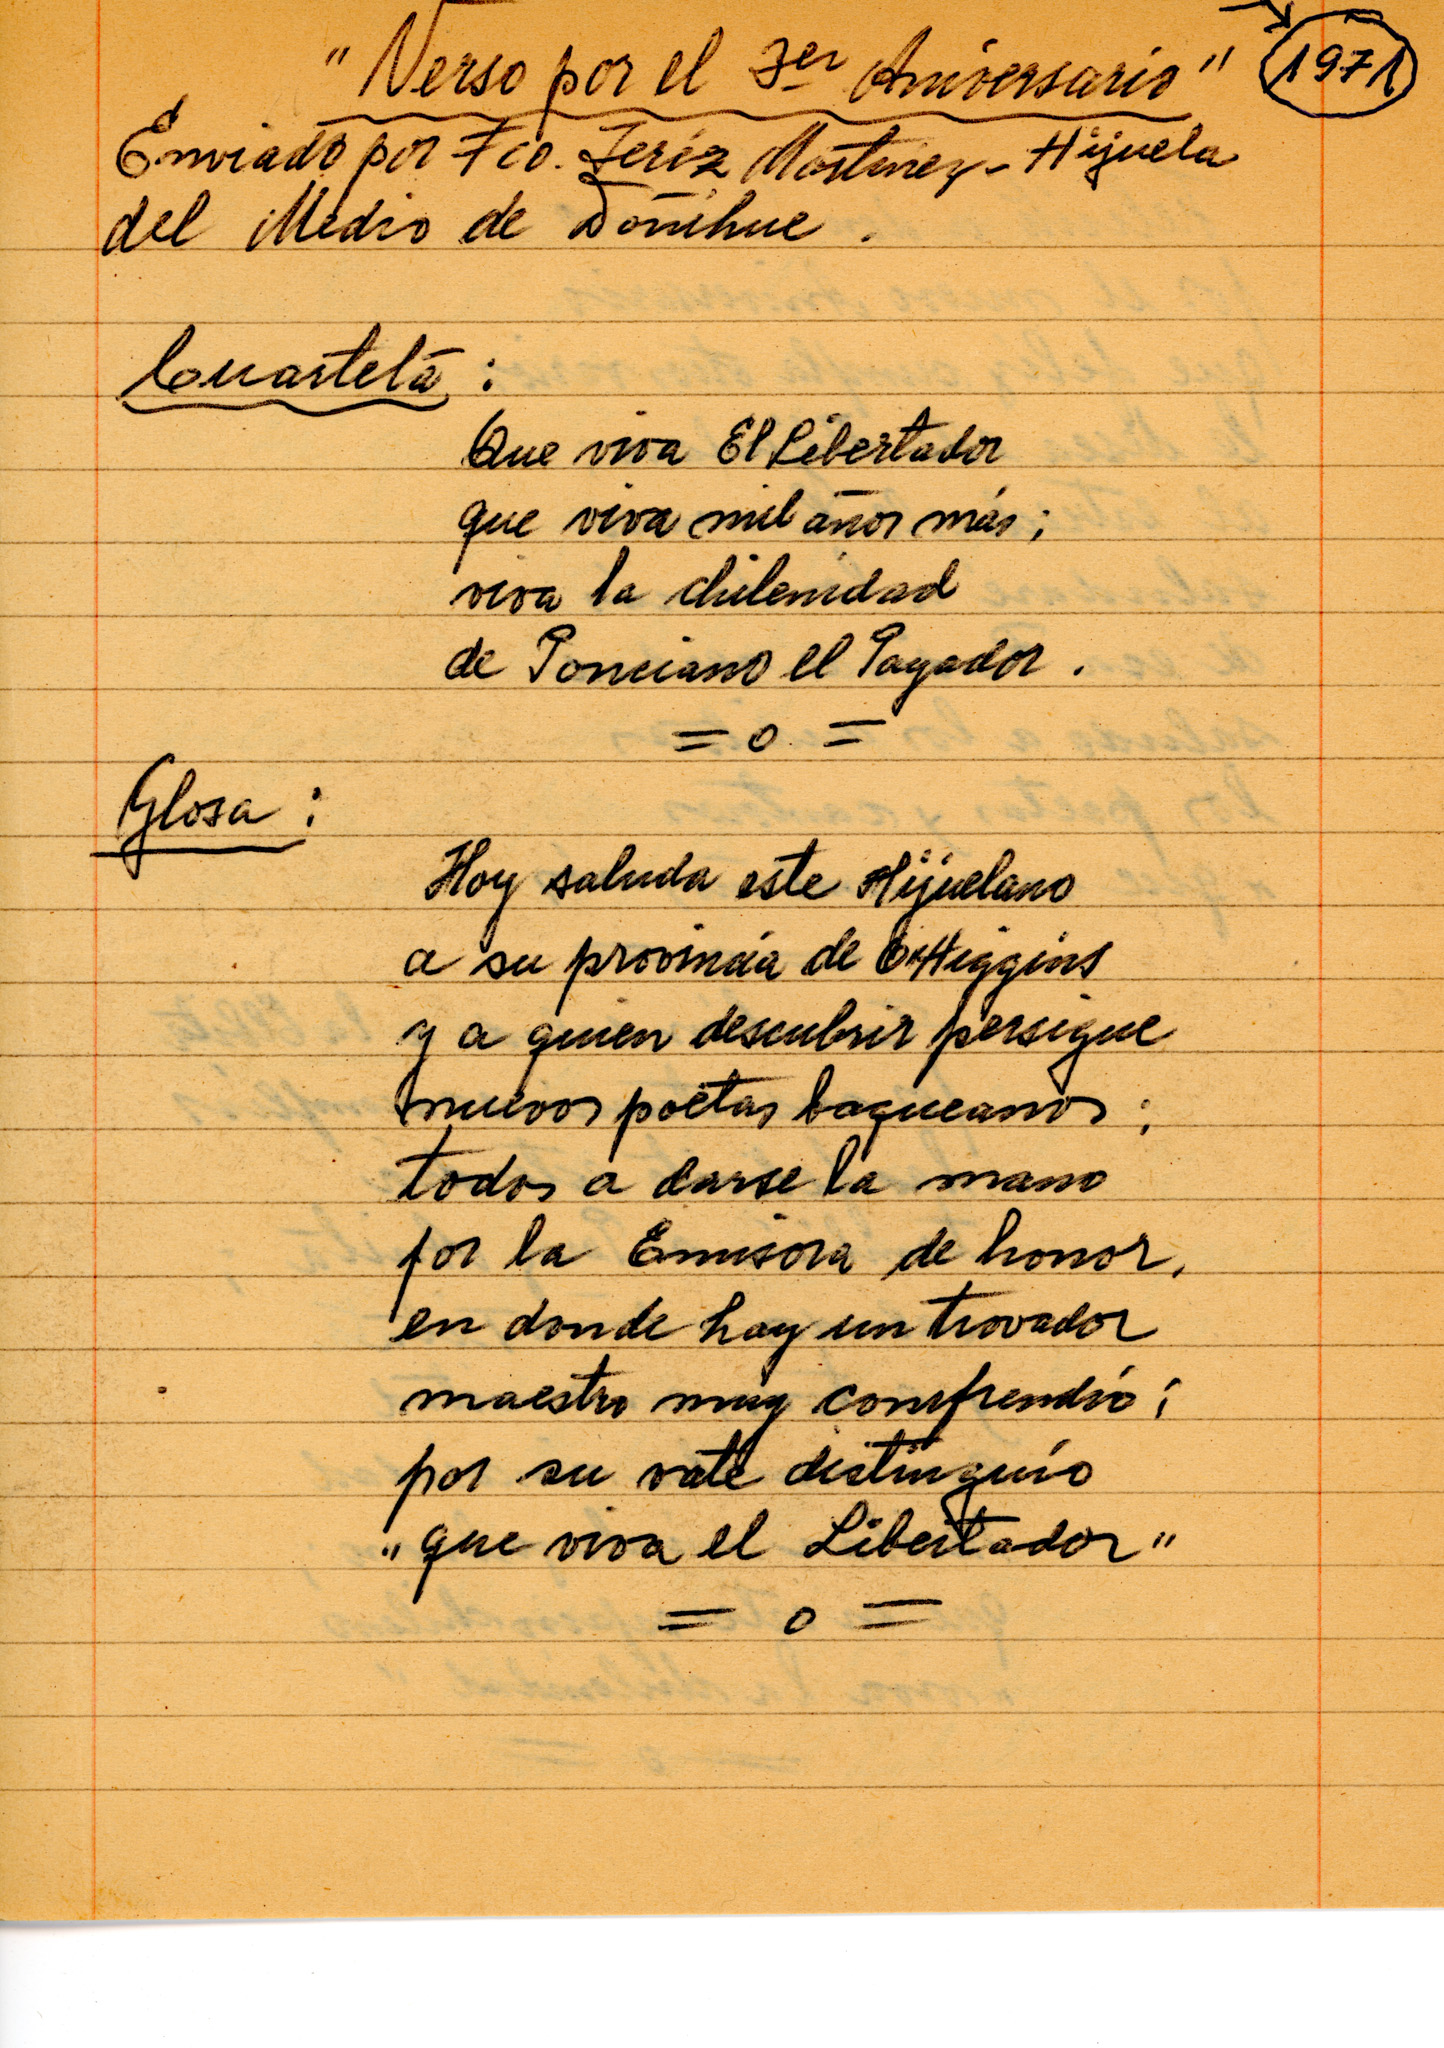 "Verso por el 3er Aniversario"
1971
Enviado por Fco. Jeréz Martínez - Hijuela
del Medio de Doñihue.
Cuarteta:
Que viva El Libertador
que viva mil años más;
viva la chilenidad
de Ponciano el Payador.
= o =
Glosa:
Hoy saluda este Hijuelano
a su provincia de O'Higgins
y a quien descubrir persigue
nuevos poetas baqueanos;
todos a darse la mano
por la Emisora de honor,
en donde hay un trovador
maestro muy comprendío;
por su vate distinguío
"que viva el Libertador"
= o =